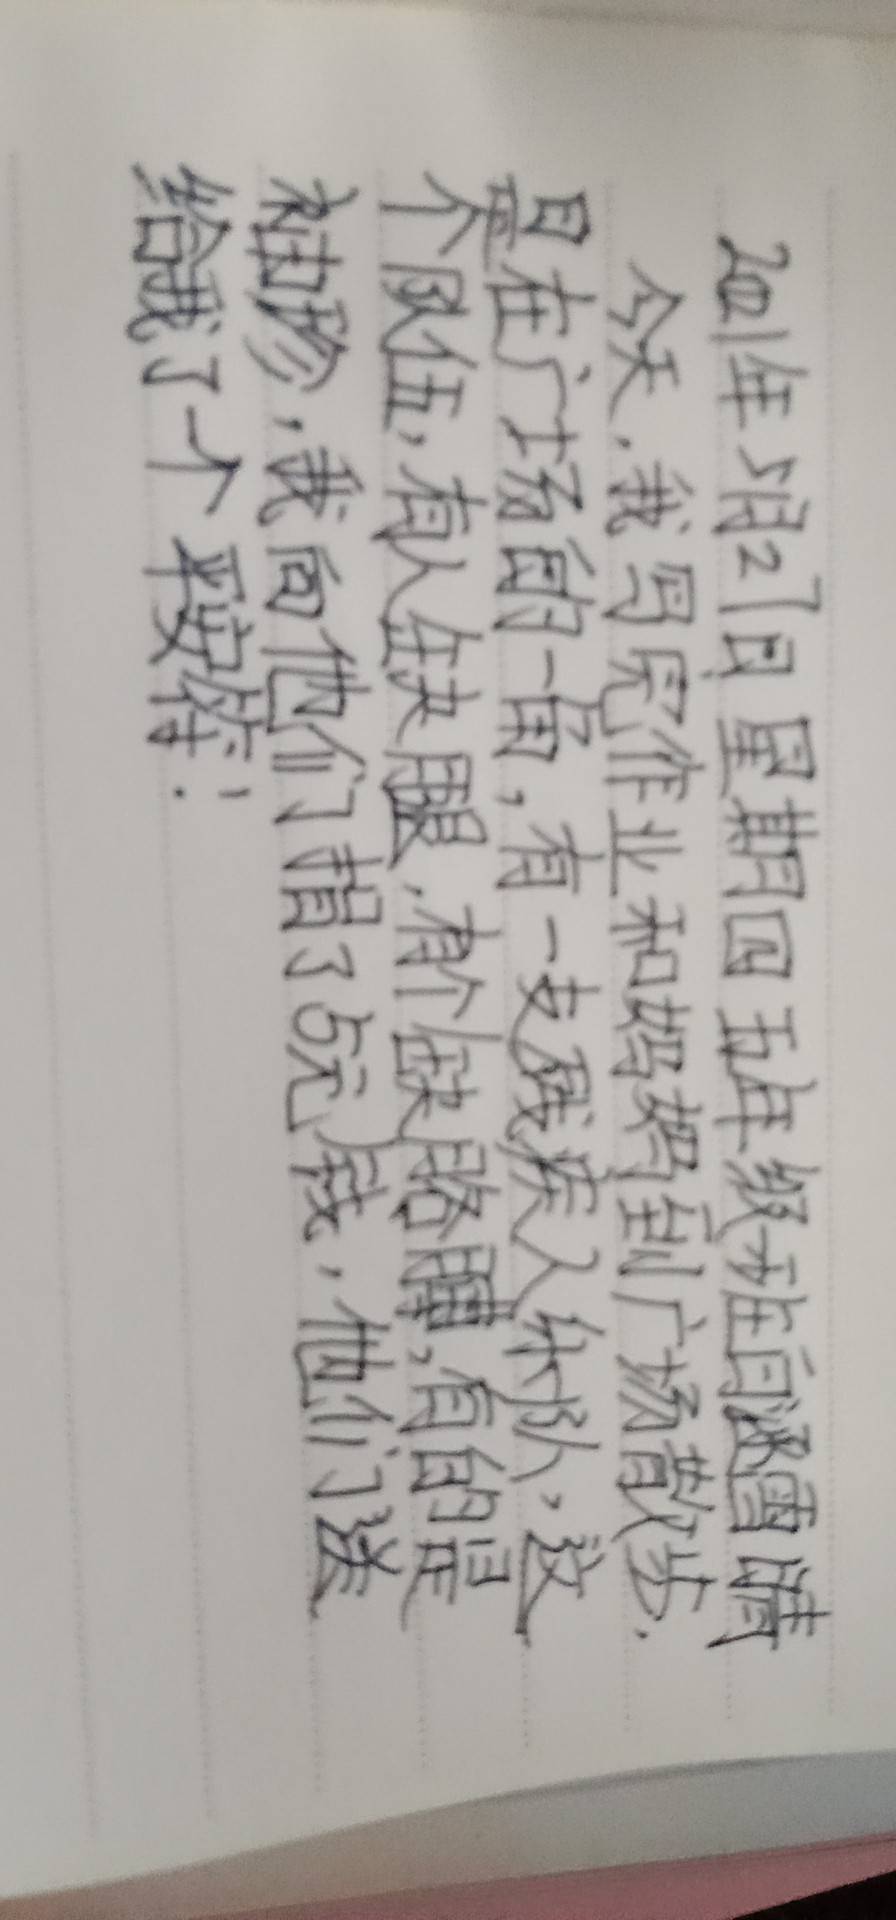 2021年5月27日 星期四 五年级一班 闫涵雪晴
今天，我写完作业和妈妈到广场散步.
是在广场的一角，有一支残疾人乐队，这
个队伍，有人缺腿，有个缺胳膊，有的是
袖珍，我向他们捐了5元钱，他们送
给我了一个平安符！